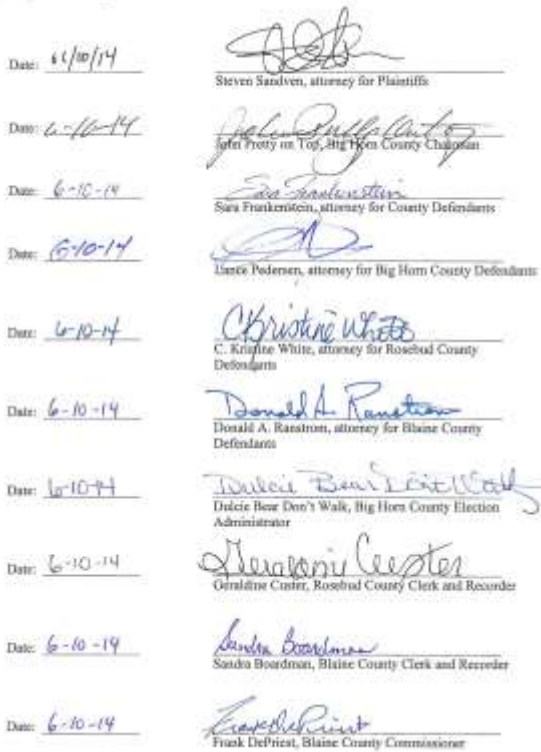 Date: 6/10/14
Steven Sandven, attorney for Plaintiffs
Date: 6-10-14
John Pretty on Top, Big Horn County Chairman
Date: 6-10-14
Sara Frankenstein
Sara Frankenstein, attorney for County Defendants
Date: 6-10-14
Lance Pedersen, attorney for Big Horn County Defendants
Date: 6-10-14
CKristine White
C. Kristine White, attorney for Rosebud County
Defendants
Date: 6-10-14
Donald A. Ranstrom
Donald A. Ranstrom, attorney for Blaine County
Defendants
Date: 6-10-14
Dulcie Bear Don't Walk
Dulcie Bear Don't Walk, Big Horn County Election
Administrator
Date: 6-10-14
Geraldine Custer
Geraldine Custer, Rosebud County Clerk and Recorder
Date: 6-10-14
Sandra Boardman
Sandra Boardman, Blaine County Clerk and Recorder
Date: 6-10-14
Frank DePriest
Frank DePriest, Blaine County Commissioner